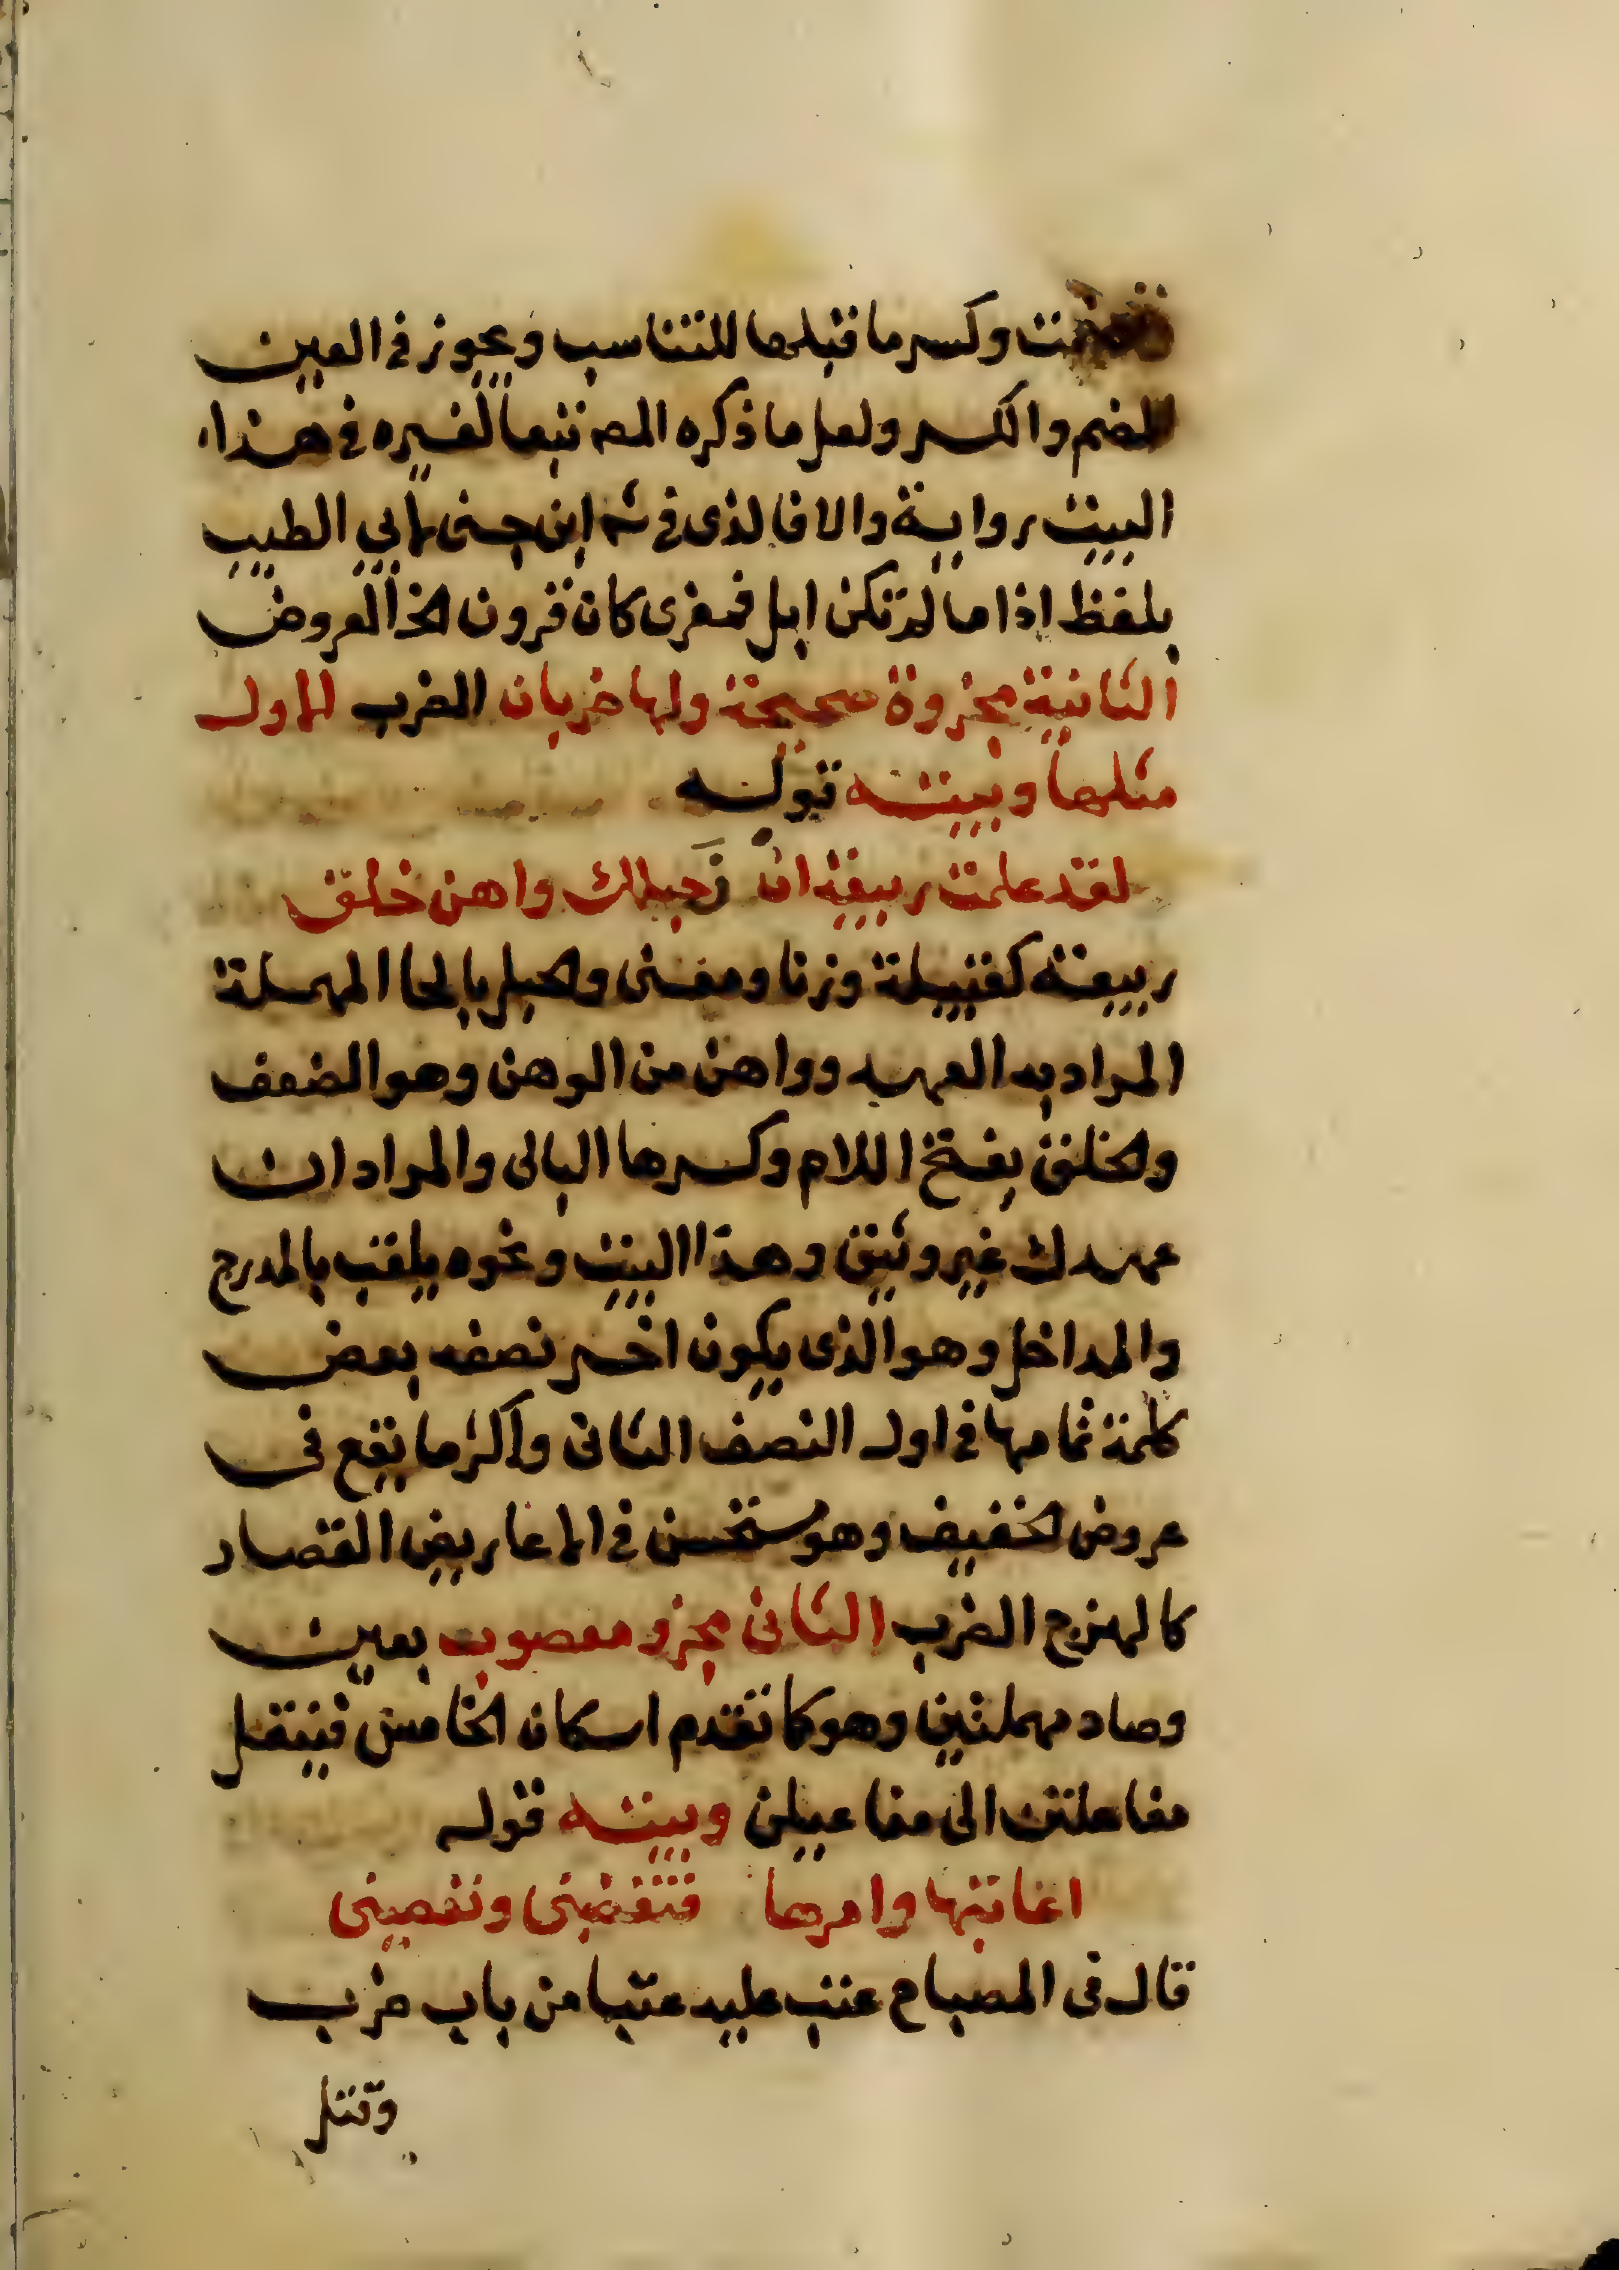 وكسر ما قبلها للتناسب ويجوز في العين
الضم والكسر ولعل ما ذكره المص تبعا لغيره في هذا
البيت رواية والا فالذى في شرح ابن جنى لابي الطيب
بلفظ اذا ما لم تكن ابل فمعزى كان قرون الخ العروض
الثانية مجزوة صحيحة ولها ضربان الضرب الاول
مثلها وبيته قوله
لقد علمت ربيعة ان حبلك واهن خلق
ربيعة كقبيلة وزنا ومعنى والحبل بالحا المهملة
المراد به العهد وواهن من الوهن وهو الضعف
والخلق بفتح اللام وكسرها البالى والمراد ان
عهدك غير وثيق وهذا البيت ونحوه يلقب بالمدرج
والمداخل وهو الذى يكون اخر نصفه بعض
كلمة تمامها في اول النصف الثانى واكثر ما يقع في
عروض الخفيف وهو مستحسن في الاعاريض القصار
كالهزج الضرب الثانى مجزو معصوب بعين
وصاد مهملتين وهو كما تقدم اسكان الخامس فينتقل
مفاعلتن الى مفاعيلن وبيته قوله
اعاتبها وامرها فتغضبنى وتعصينى
قال في المصباح عتب عليه عتبا من باب ضرب
وقتل